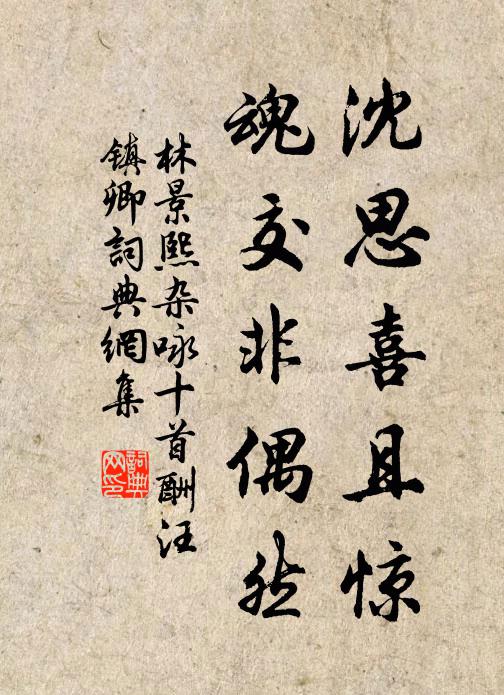 沈思喜且惊
魂交非偶然
林景熙杂咏十首酬汪
镇卿詞典網集
詞典网印